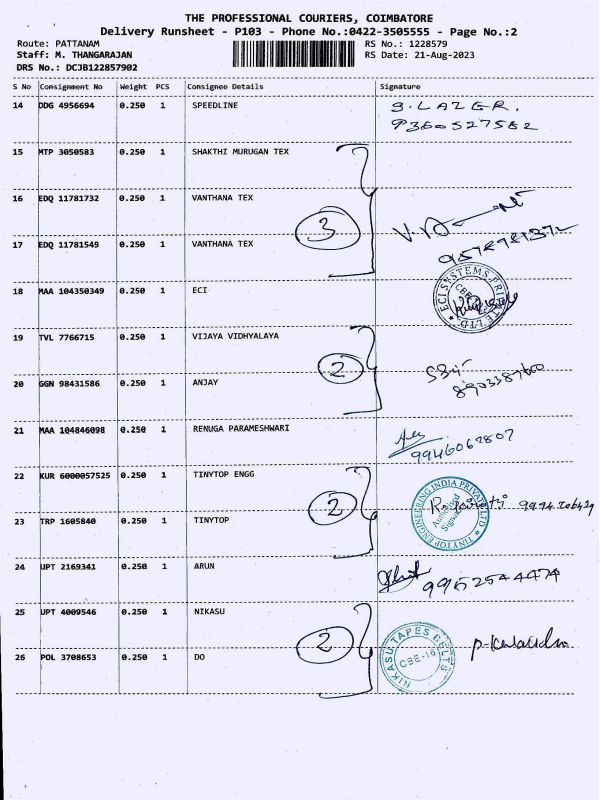 THE PROFESSIONAL COURIERS, COIMBATORE
Delivery Runsheet - P103 - Phone No.:0422-3505555 - Page No.:2
Route: PATTANAM RS No.: 1228579
Staff: M. THANGARAJAN RS Date: 21-Aug-2023
DRS No.: DCJB122857902
S No Consignment No Weight PCS Consignee Details Signature
14 DDG 4956694 0.250 1 SPEEDLINE S. LAZER.
9360527582
15 MTP 3050583 0.250 1 SHAKTHI MURUGAN TEX
16 EDQ 11781732 0.250 1 VANTHANA TEX
3
17 EDQ 11781549 0.250 1 VANTHANA TEX
18 MAA 104350349 0.250 1 ECI
ECI SYSTEMS PRIVATE LTD.
19 TVL 7766715 0.250 1 VIJAYA VIDHYALAYA
2
20 GGN 98431586 0.250 1 ANJAY
8903387600
21 MAA 104846098 0.250 1 RENUGA PARAMESHWARI
9946062807
22 KUR 6000057525 0.250 1 TINYTOP ENGG
2
TINYTOP ENGINEERING INDIA PRIVATE LTD
Authorised Signatory
23 TRP 1605840 0.250 1 TINYTOP
24 UPT 2169341 0.250 1 ARUN
9952544474
25 UPT 4009546 0.250 1 NIKASU
2
NIKASU TAPES BELTS
CBE-16
26 POL 3708653 0.250 1 DO